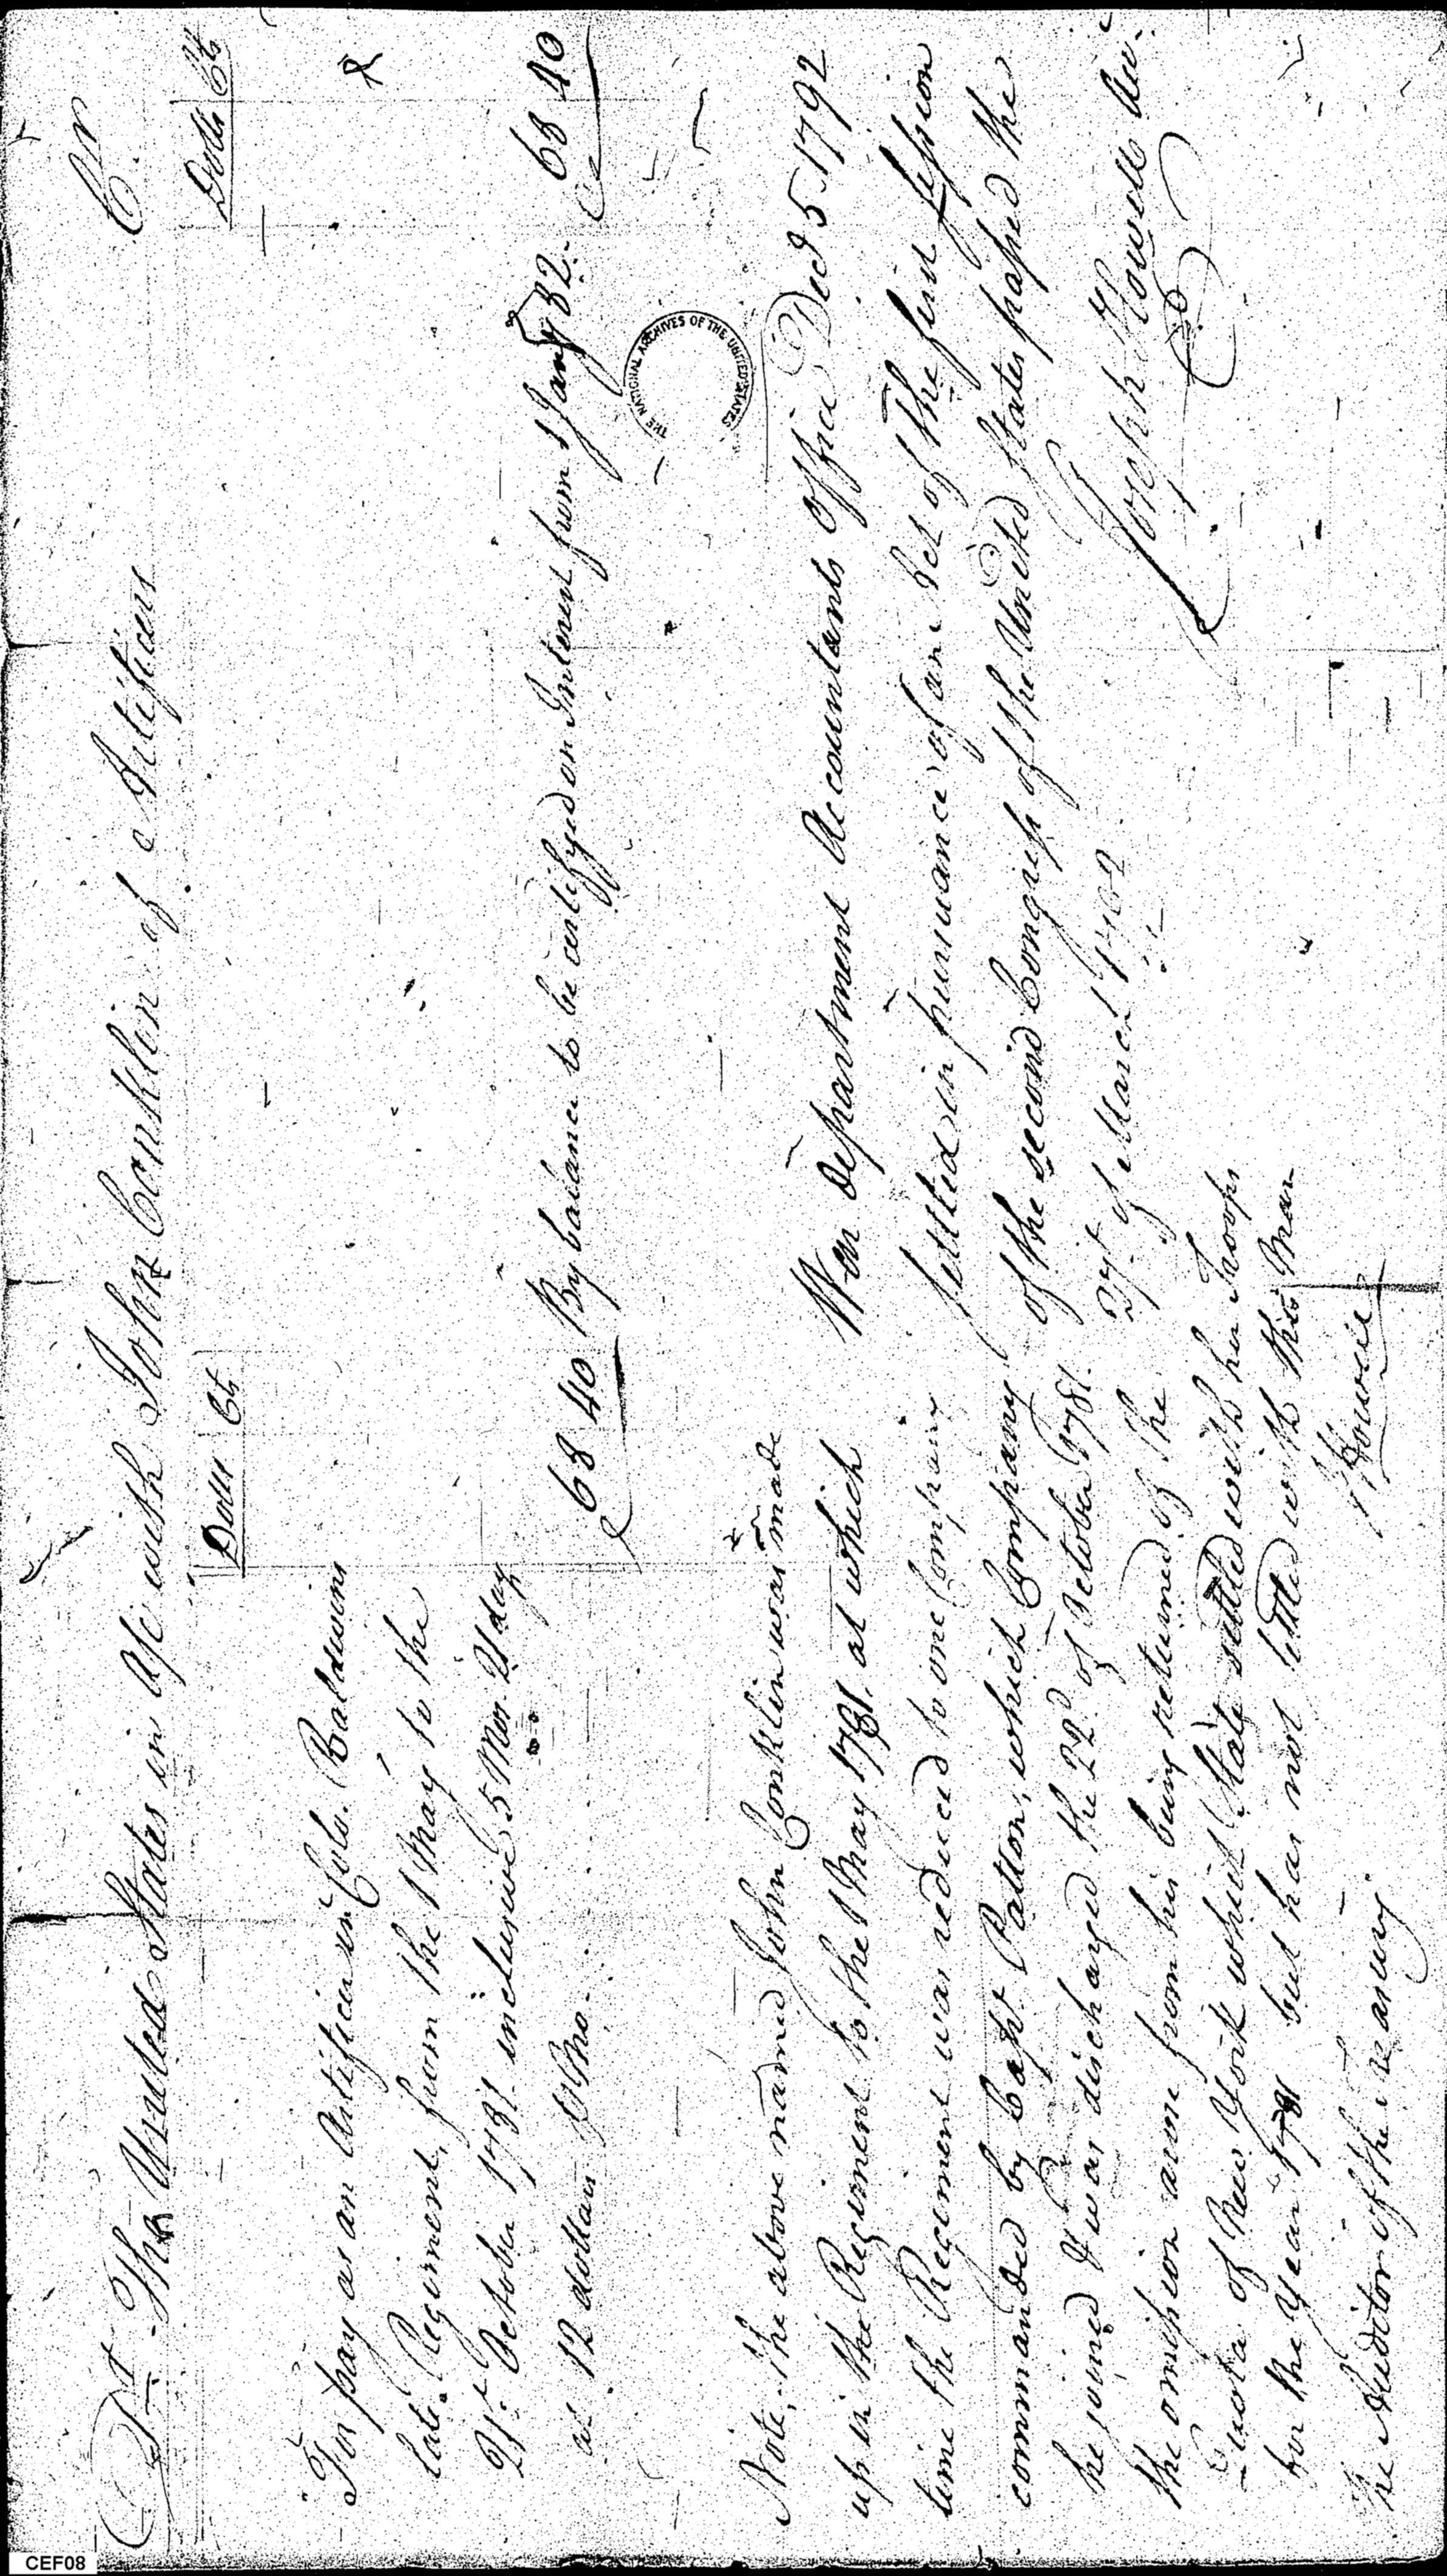 Dr. The United States in a/c with John Conklin of Artificers Cr
Dolls Cts
Dolls Cts
For pay as an Artificer in Colo. Baldwins
late Regiment, from the 1 May to the
21st. October 1781 inclusive 5 Mos. 21 day
at 12 dollars P Mo.
68 40
By balance to be certifyed on Interest from 1 Jany 82.
68 40
THE NATIONAL ARCHIVES OF THE UNITED STATES
Note, the above named John Conklin was made
up in the Regiment to the 1 May 1781. at which
time the Regiment was reduced to one Company
commanded by Capt. Patton, which Company
he joined & was discharged the 22d. of October 1781.
the omission arose from his being returned of the
Quota of New York which State settled with her Troops
for the Year 1781 but has not settled with this Man
J Howell
The Auditor of the Treasury
War department Accountants Office Decr 5 1792
Settled in pursuance of an Act of the first session
of the second Congress of the United States passed the
27t. of March 1792
Joseph Howell
CEF08